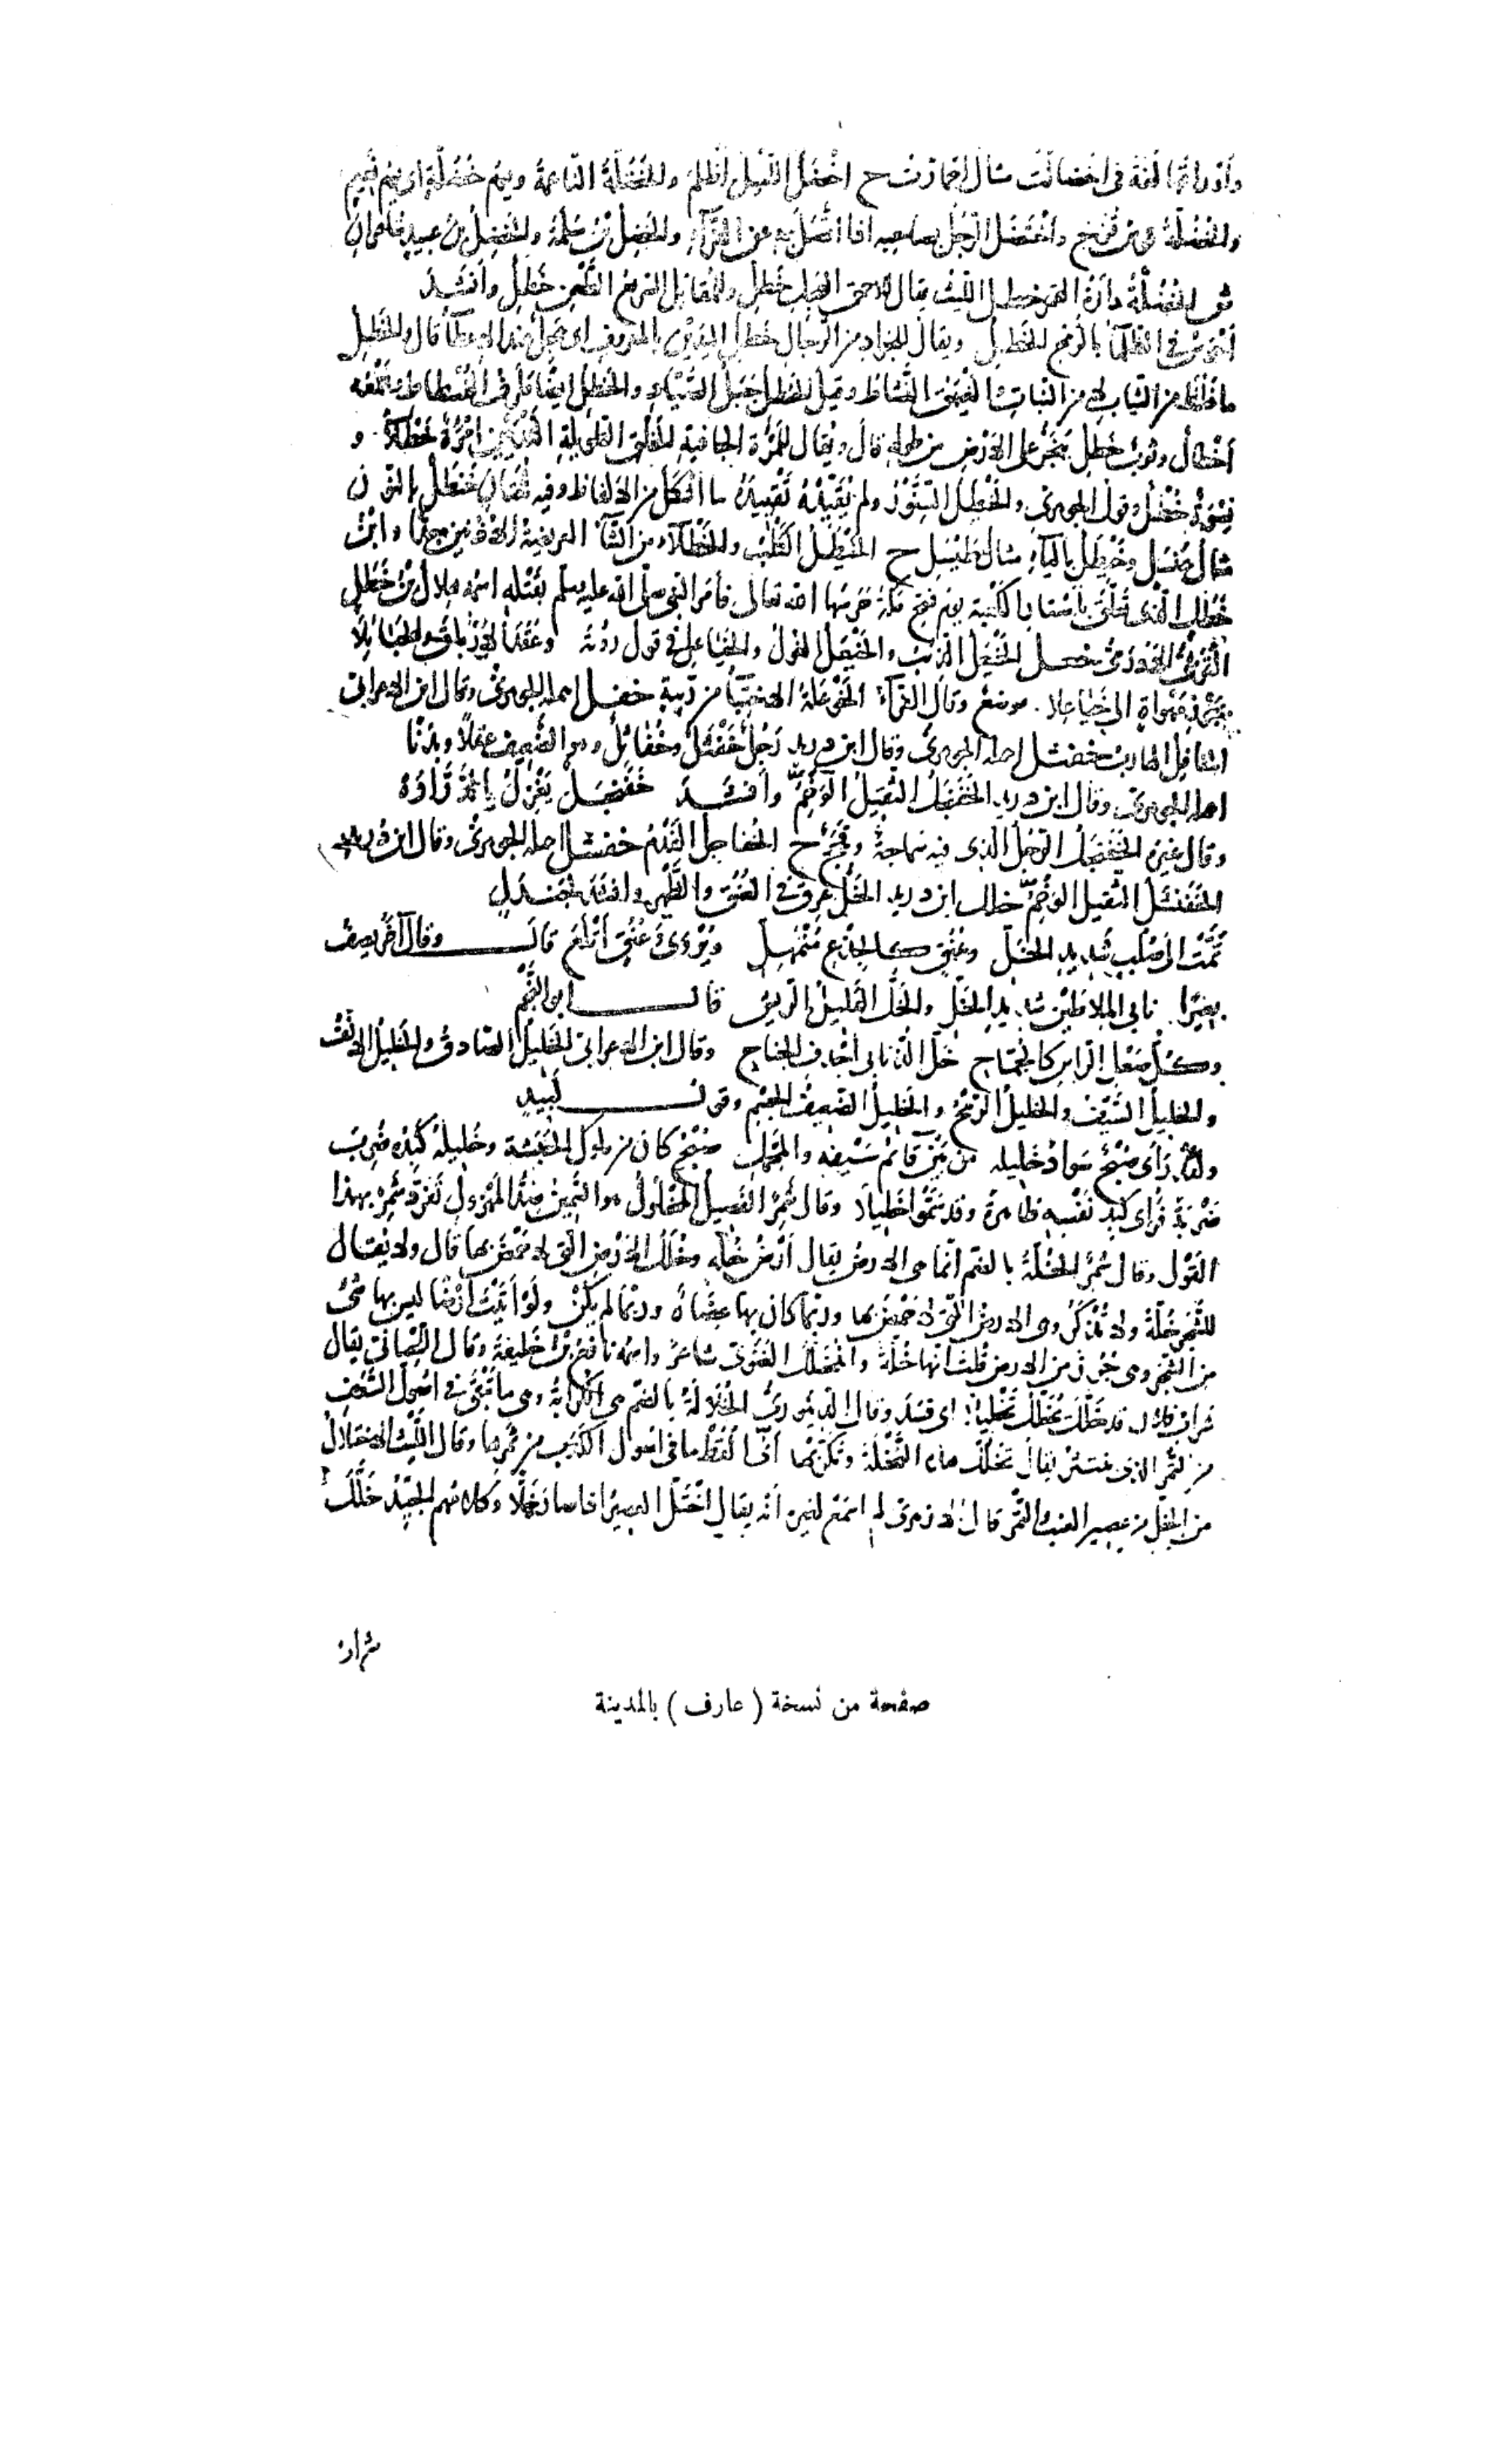 وأورد أنها لغة في اخضالّت مثال احمأزت ح اخضل الليل أظلم والخضلة الناعمة ويوم خضلة اي يوم نعيم
والخضلة قوس قزح واختضل الرجل بصاحبه اذا اتصل به عن الفراء والخضل بن سلمة والخضل بن عبيد شاعران
الخضلة دارة القمر خطل الليث يقال للاحمق العجل خطل وللمقاتل السريع الطعن خطل وأنشد
في الظلماء بالرمح الخطل ويقال للجواد من الرجال خطل اليدين بالمعروف اي عجل عند العطاء قال والخطل
ما غلظ من الثياب من النبات وقيل الخطل حبل الصياد والخطل ايضا طرف الفسطاط وجمعه
أخطال وثوب خطل ينجر على الارض من طوله قال ويقال للمرأة الجافية الخلق الطويلة الثديين امرأة خطلاء و
نسوة خطل وقول الجوهري والخيطل السنور ولم يقيده تقييده ما اشكل من الالفاظ وفيه لغتان خنطل بالنون
مثال وخيطل بالياء مثال ح الخيطل الكلب والخطلاء من الشاء العريضة الاذنين جدا وابن
خطل الذي تعلق بأستار الكعبة يوم فتح مكة حرسها الله تعالى فأمر النبي صلى الله عليه وسلم بقتله اسمه هلال بن خطل
خعل الخيعل الذئب والخيعل الغول والخياعل في قول رؤبة وعقد
الى خياعلا . موضع وقال الفراء الخوعلة الاختباء من ريبة خفل اهمله الجوهري وقال ابن الاعرابي
الخافل الهارب خفثل اهمله الجوهري وقال ابن دريد رجل خفثل وخفاثل وهو الضعيف عقلا وبدنا
اهمله الجوهري وقال ابن دريد الخفنجل الثقيل الوخم وأنشد خفنجل يغزل بالدرارة
وقال غيره الخفنجل الرجل الذي فيه سماجة وفحج ح الخفاجل الفدم خفشل اهمله الجوهري وقال ابن دريد
الخفنشل الثقيل الوخم خلل ابن دريد الخل عرق في العنق والظهر وانشد لجندل
ثمت الى صلب شديد الخل وعنق كالجذع متمهل ويروى وعنق أتلع قال وقال آخر يصف
بعيرا . نابي الملاطين شديد الخل والخل القليل الريش قال ابو النجم
وكل صعل الراس كالجماح خل الذنابي أجدف الجناح وقال ابن الاعرابي الخليل الصادق والخليل الانف
والخليل السيف والخليل الرمح والخليل الضعيف الجسم وقول لبيد
ولقد رأى صبح سواد خليله من بين قائم سيفه والمحمل صبح كان من ملوك الحبشة وخليله كبده ضرب
ضربة فرأى كبد نفسه ظاهرة وقد سموا خليلا وقال شمر الفصيل المخلول هو السمين ضد المهزول تفرد شمر بهذا
القول وقال شمر الخلة بالضم انما هي الارض يقال أرض خلة وخلل الارض التي لا حمض بها قال ولا يقال
للشجر خلة ولا تذكر وهي الارض التي لا حمض بها وربما كان بها عضاه وربما لم يكن ولو أتيت أرضا ليس بها شئ
من الشجر وهي جرز من الارض قلت انها خلة والمخلل الغنوي شاعر واسمه نافع بن خليفة وقال اللحياني يقال
شراب فلان قد خللت تخلل تخليلا اي فسد وقال الدينوري الخلالة بالضم هي الكرابة وهي ما تبقى في اصول السعف
من التمر الذي ينتثر يقال تخلل هذه النخلة وتكربها أي القط ما في اصول الكرب من تمرها وقال الليث الاختلال
من الخل من عصير العنب والتمر قال الازهري لم اسمع لغيره أنه يقال اختل العصير اذا صار خلا وكلامهم الجيد خلل
شراب
صفحة من نسخة ( عارف ) بالمدينة